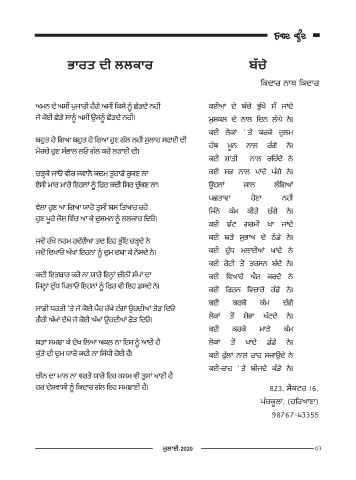 ਭਾਰਤ ਦੀ ਲਲਕਾਰ
ਅਮਨ ਦੇ ਅਸੀਂ ਪੁਜਾਰੀ ਹੈਗੇ ਅਸੀਂ ਕਿਸੇ ਨੂੰ ਛੇੜਦੇ ਨਹੀਂ
ਜੇ ਕੋਈ ਛੇੜੇ ਸਾਨੂੰ ਅਸੀਂ ਉਸਨੂੰ ਛੋੜਦੇ ਨਹੀਂ।
ਬਹੁਤ ਹੋ ਗਿਆ ਬਹੁਤ ਹੋ ਗਿਆ ਹੁਣ ਗੱਲ ਨਹੀਂ ਸੁਲਾਹ ਸਫਾਈ ਦੀ
ਮੋਰਚੇ ਹੁਣ ਸੰਭਾਲ ਲਓ ਗੱਲ ਕਰੋ ਲੜਾਈ ਦੀ।
ਚੜ੍ਹਕੇ ਜਾਓ ਵੀਰ ਜਵਾਨੋਂ ਕਦਮ ਤੁਹਾਡੇ ਰੁਕਣ ਨਾ
ਐਸੀ ਮਾਰ ਮਾਰੋ ਇਹਨਾਂ ਨੂੰ ਫਿਰ ਕਦੀ ਸਿਰ ਚੁੱਕਣ ਨਾ।
ਵੇਲਾ ਹੁਣ ਆ ਗਿਆ ਯਾਰੋ ਤੁਸੀਂ ਬਸ ਤਿਆਰ ਰਹੋ
ਹੁਣ ਪੂਰੇ ਜੋਸ਼ ਵਿੱਚ ਆ ਕੇ ਦੁਸ਼ਮਨ ਨੂੰ ਲਲਕਾਰ ਦਿਓ।
ਜਦੋਂ ਰੱਖੋ ਨਰਮ ਰਵੱਈਆ ਤਦ ਇਹ ਭੂਹੇ ਚੜ੍ਹਦੇ ਨੇ
ਜਦੋਂ ਦਿਖਾਓ ਅੱਖਾਂ ਇਹਨਾਂ ਨੂੰ ਦੁਮ ਦਬਾ ਕੇ ਨੱਸਦੇ ਨੇ।
ਕਦੀ ਇਤਬਾਰ ਕਰੋ ਨਾ ਯਾਰੋ ਇਨ੍ਹਾਂ ਚੀਨੀ ਸੱਪਾਂ ਦਾ
ਜਿਨ੍ਹਾਂ ਦੁੱਧ ਪਿਲਾਓ ਇਹਨਾਂ ਨੂੰ ਫਿਰ ਵੀ ਇਹ ਡਸਦੇ ਨੇ।
ਸਾਡੀ ਧਰਤੀ 'ਤੇ ਜੋ ਕੋਈ ਪੈਰ ਰੱਖੇ ਟੰਗਾਂ ਉਹਦੀਆਂ ਤੋੜ ਦਿਓ
ਗੈਰੀ ਅੱਖਾਂ ਦੇਖੇ ਜੋ ਕੋਈ ਅੱਖਾਂ ਉਹਦੀਆਂ ਫੋੜ ਦਿਓ।
ਬੜਾ ਸਮਝਾ ਕੇ ਦੇਖ ਲਿਆ ਅਕਲ ਨਾ ਇਸ ਨੂੰ ਆਈ ਹੈ
ਕੁੱਤੇ ਦੀ ਦੁਮ ਯਾਰੋ ਕਦੀ ਨਾ ਸਿੱਧੀ ਹੋਈ ਹੈ।
ਚੀਨ ਦਾ ਮਾਲ ਨਾ ਵਰਤੋ ਯਾਰੋ ਇਹ ਕਸਮ ਵੀ ਤੁਸਾਂ ਖਾਣੀ ਹੈ
ਹਰ ਦੇਸ਼ਵਾਸੀ ਨੂੰ ਕਿਦਾਰ ਗੱਲ ਇਹ ਸਮਝਾਣੀ ਹੈ।
ਬੱਚੇ
ਕਿਦਾਰ ਨਾਥ ਕਿਦਾਰ
ਕਈਆਂ ਦੇ ਬੱਚੇ ਭੁੱਖੇ ਸੌਂ ਜਾਂਦੇ
ਮੁਸ਼ਕਲ ਦੇ ਨਾਲ ਦਿਨ ਲੰਘੇ ਨੇ।
ਕਈ ਲੋਕਾਂ 'ਤੇ ਕਰਕੇ ਜ਼ੁਲਮ
ਹੱਥ ਖੂਨ ਨਾਲ ਰੰਗੇ ਨੇ।
ਕਈ ਸ਼ਾਂਤੀ ਨਾਲ ਰਹਿੰਦੇ ਨੇ
ਕਈ ਸਭ ਨਾਲ ਪਾਂਦੇ ਪੰਗੇ ਨੇ।
ਉਹਨਾਂ ਜਾਨ ਲੱਗਿਆਂ
ਪਛਤਾਵਾ ਹੋਣਾ ਨਹੀਂ
ਜਿੰਨੇ ਕੰਮ ਕੀਤੇ ਚੰਗੇ ਨੇ।
ਕਈ ਝੱਟ ਗਰਮੀ ਖਾ ਜਾਂਦੇ
ਕਈ ਬੜੇ ਸੁਭਾਅ ਦੇ ਠੰਡੇ ਨੇ।
ਕਈ ਦੁੱਧ ਮਲਾਈਆਂ ਖਾਂਦੇ ਨੇ
ਕਈ ਰੋਟੀ ਤੋਂ ਤਰਸਨ ਬੰਦੇ ਨੇ।
ਕਈ ਵਿਆਹੇ ਐਸ਼ ਕਰਦੇ ਨੇ
ਕਈ ਫਿਰਨ ਵਿਚਾਰੇ ਰੰਡੇ ਨੇ।
ਕਈ ਕਰਕੇ ਕੰਮ ਚੰਗੇ
ਲੋਕਾਂ ਤੋਂ ਸ਼ੋਭਾ ਖੱਟਦੇ ਨੇ।
ਕਈ ਕਰਕੇ ਮਾੜੇ ਕੰਮ
ਲੋਕਾਂ ਤੋਂ ਖਾਂਦੇ ਡੰਡੇ ਨੇ।
ਕਈ ਫੁੱਲਾਂ ਨਾਲ ਰਾਹ ਸਜਾਉਂਦੇ ਨੇ
ਕਈ-ਰਾਹ 'ਤੇ ਬੀਜਦੇ ਕੰਡੇ ਨੇ।
823, ਸੈਕਟਰ 16,
ਪੰਚਕੂਲਾ, (ਹਰਿਆਣਾ)
98767-43355
ਜੁਲਾਈ-2020